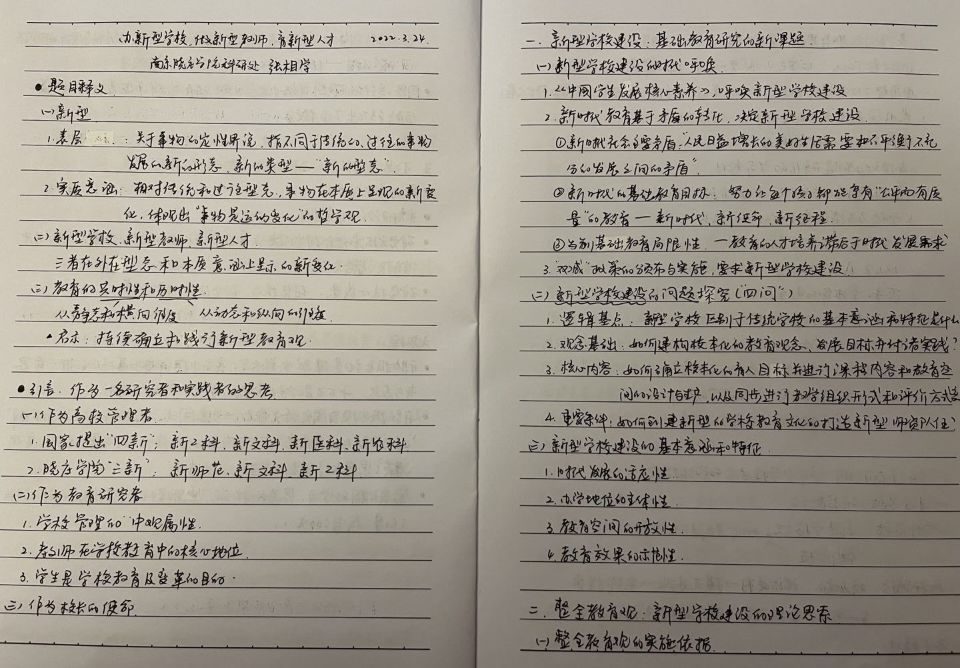 办新型学校, 做新型教师, 育新型人才 2022.3.24.
南京晓庄学院科研处 张相学
● 题目释义
(一)新型
1. 表层 : 关于事物的定性界说, 指不同于传统的、过往的事物
发展的新的形态, 新的类型——"新的型态".
2. 实质意涵: 相对传统和过往型态, 事物在本质上呈现的新变
化, 体现出"事物是运动变化"的哲学观
(二)新型学校、新型教师、新型人才
三者在外在型态和本质意涵上显示的新变化.
(三)教育的共时性和历时性.
从静态和横向维度 从动态和纵向的维度
启示: 持续确立和践行新型教育观.
● 引言: 作为一名研究者和实践者的思考
(一)作为高校管理者
1. 国家提出"四新": 新工科、新文科、新医科、新农科
2. 晓庄学院"三新": 新师范、新文科、新工科
(二)作为教育研究者
1. 学校管理的"中观属性.
2. 教师在学校教育中的核心地位.
3. 学生是学校教育及变革的目的.
(三)作为校长的使命.
一. 新型学校建设: 基础教育研究的新课题
(一)新型学校建设的时代呼唤.
1.《中国学生发展核心素养》, 呼唤新型学校建设
2. 新时代教育基于矛盾的转化, 决定新型学校建设
①新时代社会主要矛盾,"人民日益增长的美好生活需要和不平衡不充
分的发展之间的矛盾"
②新时代的基础教育目标: 努力让每个孩子都能享有"公平而有质
量"的教育—新时代、新使命、新征程
③当前基础教育局限性, —教育的人才培养滞后于时代发展需求
3. "双减"政策的颁布与实施, 要求新型学校建设
(二)新型学校建设的问题探究("四问")
1. 逻辑基点: 新型学校区别于传统学校的基本意涵和特征是什么
2. 观念基础: 如何建构校本化的教育观念、发展目标并付诸实践?
3. 核心内容: 如何确立校本化的育人目标并进行课程内容和教育空
间的设计与 以及同步进行教学组织形式和评价方式
4. 重要条件: 如何创建新型的学校教育文化的打造新型师资队伍?
(三)新型学校建设的基本意涵和特征
1. 时代发展的适应性
2. 办学地位的主体性.
3. 教育空间的开放性.
4. 教育效果的示范性.
二. 整全教育观: 新型学校建设的理论思索
(一)整全教育观的实施依据.